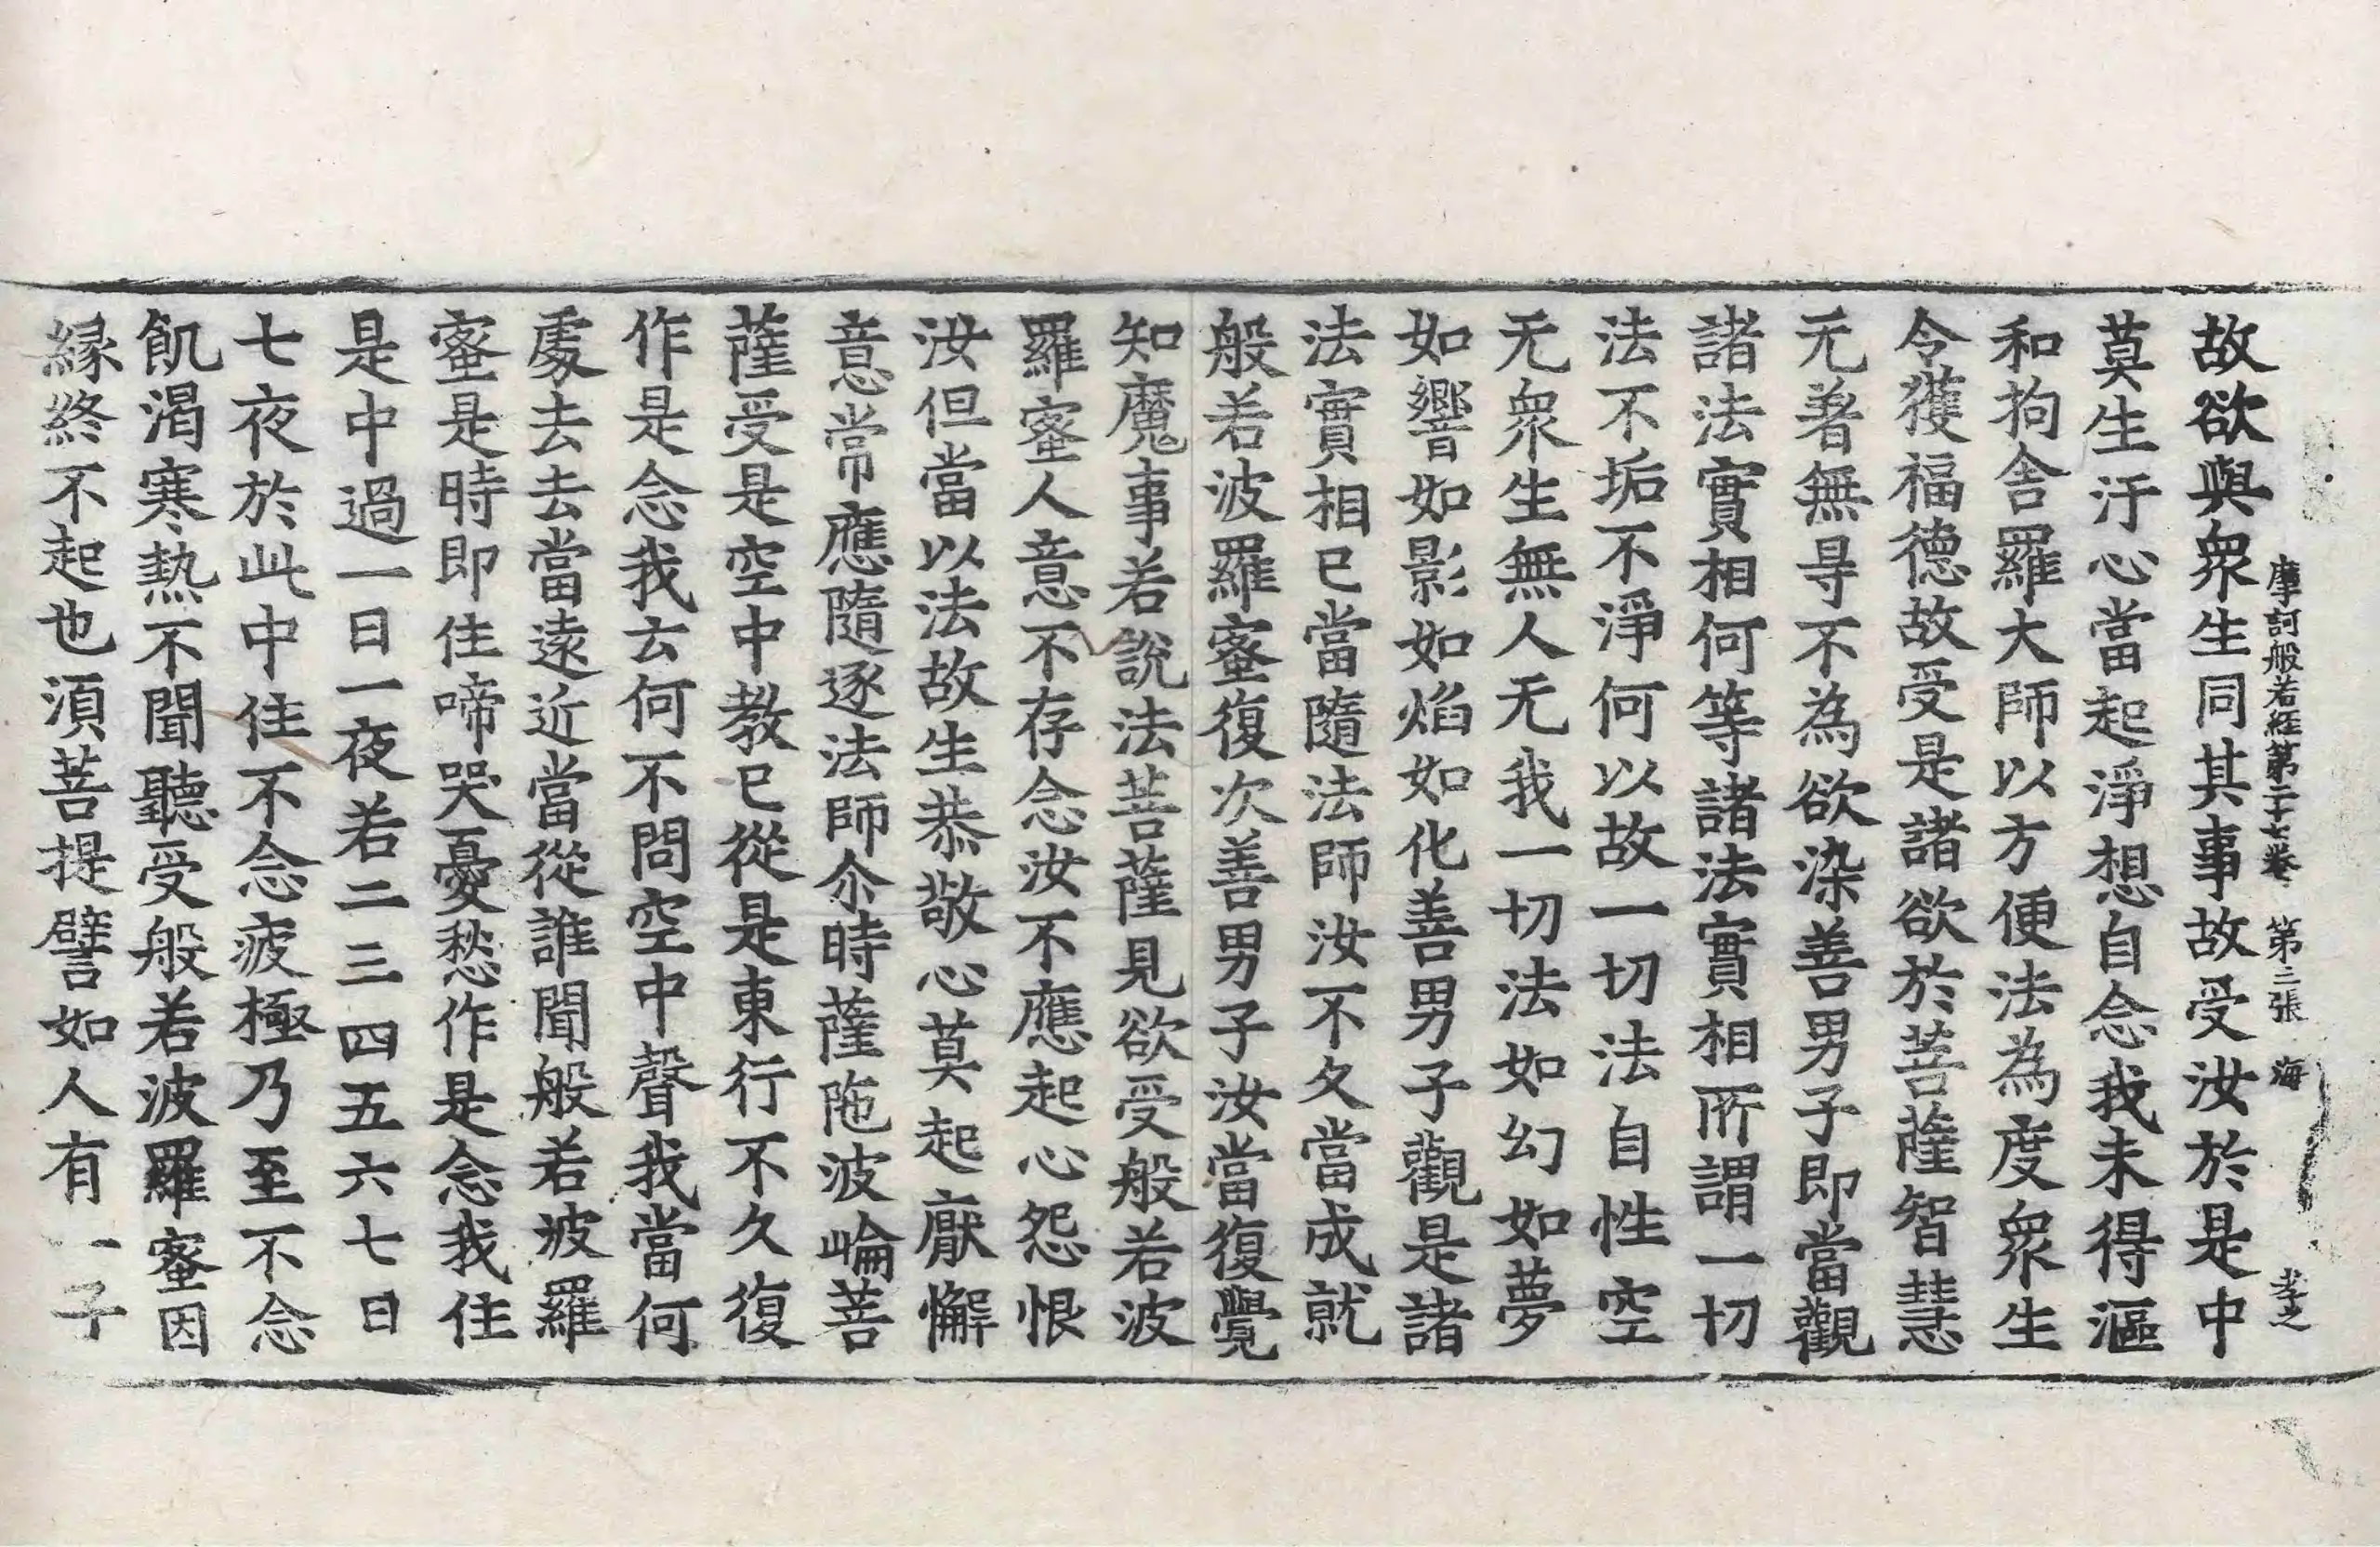 摩訶般若經第二十七卷 第三張 海 孝之
故欲與衆生同其事故受汝於是中
莫生汙心當起淨想自念我未得漚
和拘舍羅大師以方便法為度衆生
令獲福德故受是諸欲於菩薩智慧
无著無㝵不為欲染善男子即當觀
諸法實相何等諸法實相所謂一切
法不垢不淨何以故一切法自性空
无衆生無人无我一切法如幻如夢
如響如影如焰如化善男子觀是諸
法實相已當隨法師汝不久當成就
般若波羅蜜復次善男子汝當復覺
知魔事若說法菩薩見欲受般若波
羅蜜人意不存念汝不應起心怨恨
汝但當以法故生恭敬心莫起厭懈
意常應隨逐法師尒時薩陁波崘菩
薩受是空中教已從是東行不久復
作是念我云何不問空中聲我當何
處去去當遠近當從誰聞般若波羅
蜜是時即住啼哭憂愁作是念我住
是中過一日一夜若二三四五六七日
七夜於此中住不念疲極乃至不念
飢渴寒熱不聞聽受般若波羅蜜因
緣終不起也須菩提譬如人有一子